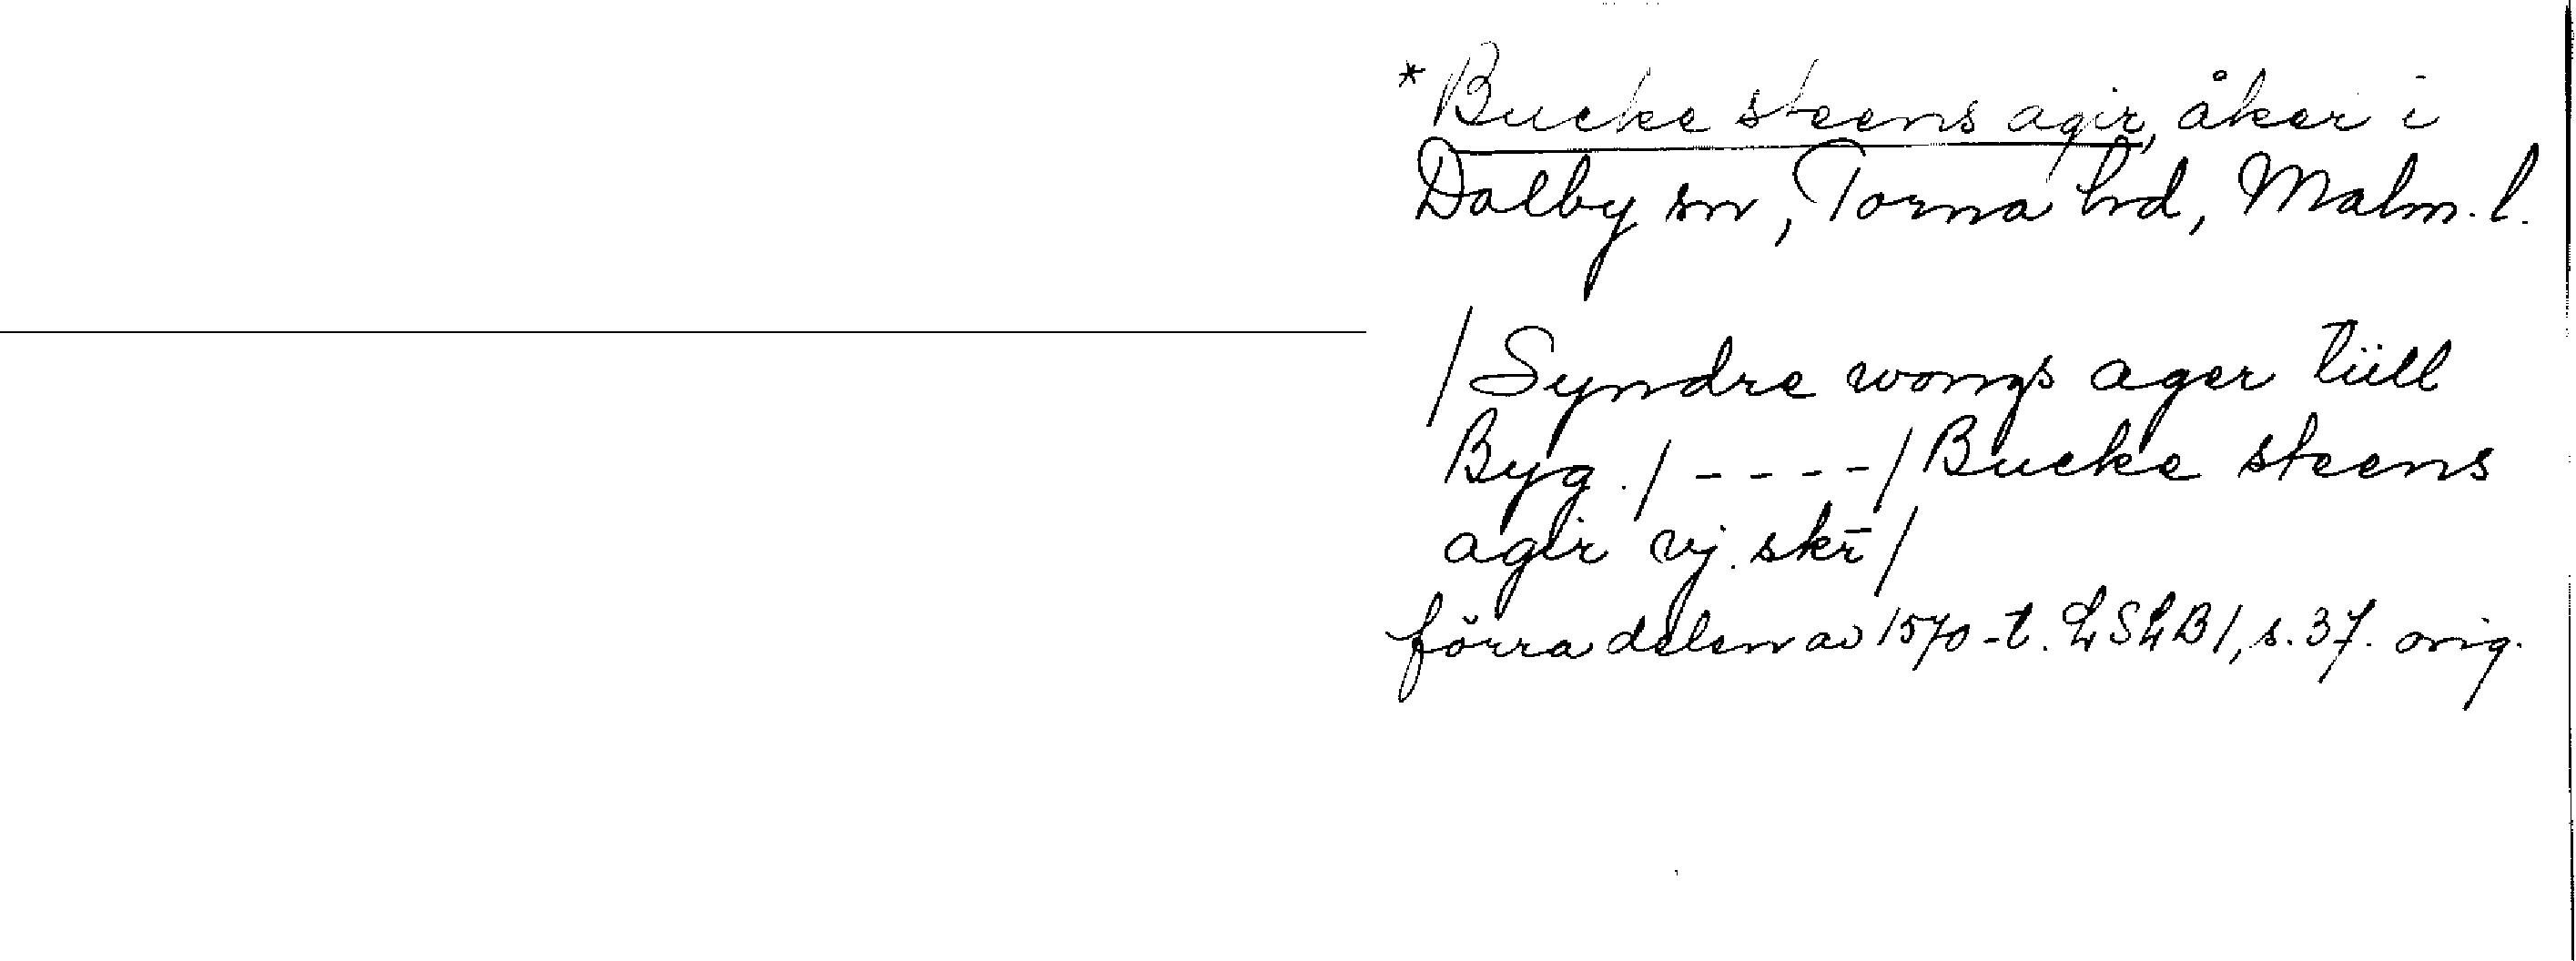 * Bucke steens agir, åker i
Dalby sn, Torna hd, Malm. l.
/ Syndre wongs ager tiill
Byg. / - - - - / Bucke steens
agir vj. skr̄ /
förra delen av 1570-t. LSLB 1, s. 37. orig.